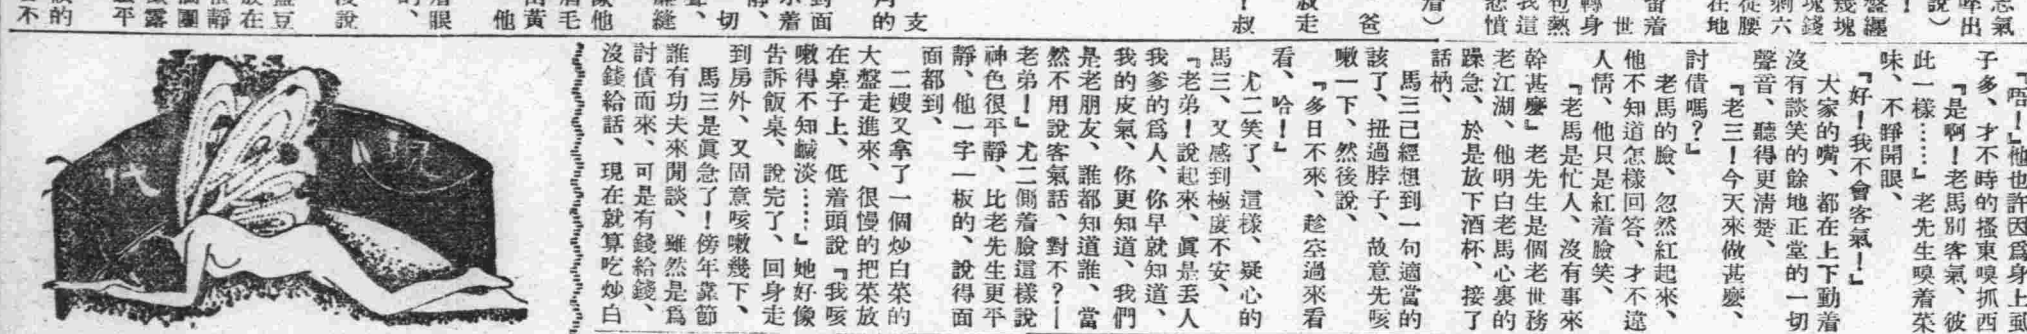 『唔！』他也許因爲身上虱
子多、才不時的搔東嗅抓西
『是啊！老馬別客氣、彼
此一樣……』老先生嗅着菜
味、不睜開眼、
『好！我不會客氣！』
大家的嘴、都在上下動着
沒有談笑的餘地正堂的一切
聲音、聽得更清楚、
『老三！今天來做甚麽、
討債嗎？』
老馬的臉、忽然紅起來、
他不知道怎樣回答、才不違
人情、他只是紅着臉笑、
『老馬是忙人、沒有事來
幹甚麽』老先生是個老世務
老江湖、他明白老馬心裏的
躁急、於是放下酒杯、接了
話柄、
馬三己經想到一句適當的
該了、扭過脖子、故意先咳
嗽一下、然後說、
『多日不來、趁空過來看
看、哈！』
尤二笑了、這樣、疑心的
馬三、又感到極度不安、
『老弟！說起來、眞是丟人
我爹的爲人、你早就知道、
我的皮氣、你更知道、我們
是老朋友、誰都知道誰、當
然不用說客氣話、對不？—
老弟！』尤二側着臉這樣說
神色很平靜、比老先生更平
靜、他一字一板的、說得面
面都到、
二嫂又拿了一個炒白菜的
大盤走進來、很慢的把菜放
在桌子上、低着頭說『我咳
嗽得不知鹹淡……』她好像
告訴飯桌、說完了、回身走
到房外、又固意咳嗽幾下、
馬三是眞急了！傍年靠節
誰有功夫來閒談、雖然是爲
討債而來、可是有錢給錢、
沒錢給話、現在就算吃炒白
現
代